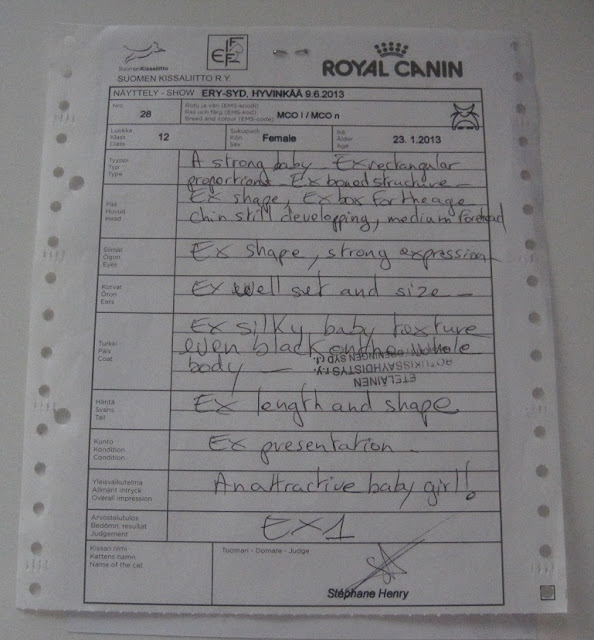 SuomenKissaliitto
FIFe
SUOMEN KISSALIITTO R.Y.
ROYAL CANIN
NÄYTTELY - SHOW ERY-SYD, HYVINKÄÄ 9.6.2013
Nro:
28
Rotu ja väri (EMS-koodi)
Ras och färg (EMS-kod)
Breed and colour (EMS-code)
MCO I / MCO n
Luokka
Klass
Class
12
Sukupuoli
Kön
Sex
Female
Ikä
Ålder
Age
23. 1.2013
Tyyppi
Typ
Type
A strong baby Ex rectangular
proportions Ex boned structure -
Pää
Huvud
Head
Ex shape, Ex box for the age
chin still developping, medium forehead
Silmät
Ögon
Eyes
Ex shape, strong expression
Korvat
Öron
Ears
Ex well set and size -
Turkki
Päls
Coat
Ex silky baby texture
even black on the whole
body -
ETELÄINEN
ROTUKISSAYHDISTYS r.y.
Häntä
Svans
Tail
Ex length and shape
Kunto
Kondition
Condition
Ex presentation -
Yleisvaikutelma
Allmänt intryck
Overall impression
An attractive baby girl!
Arvostelutulos
Bedömn. resultat
Judgement
EX1
Kissan nimi
Kattens namn
Name of the cat
Tuomari - Domare - Judge
Stéphane Henry